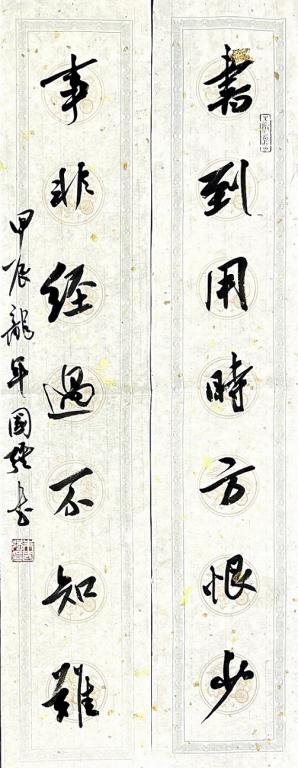 書到用時方恨少
事非經過不知難
甲辰龍年國